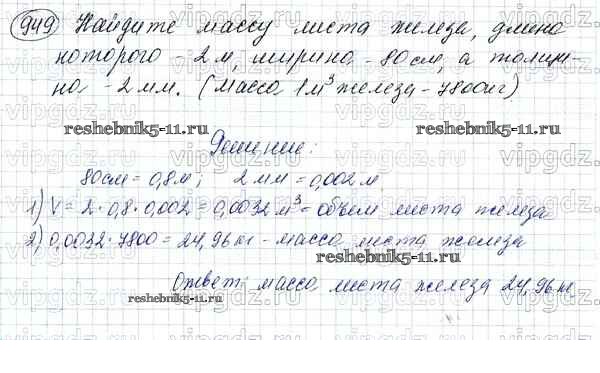 949 Найдите массу листа железа, длина
которого - 2 м, ширина - 80 см, а толщи-
на - 2 мм. (Масса 1 м³ железа - 7800 кг)
reshebnik5-11.ru reshebnik5-11.ru
Решение:
80 см = 0,8 м; 2 мм = 0,002 м
1) V = 2 · 0,8 · 0,002 = 0,0032 м³ - объем листа железа
2) 0,0032 · 7800 = 24,96 кг - масса листа железа
Ответ: масса листа железа 24,96 кг
reshebnik5-11.ru